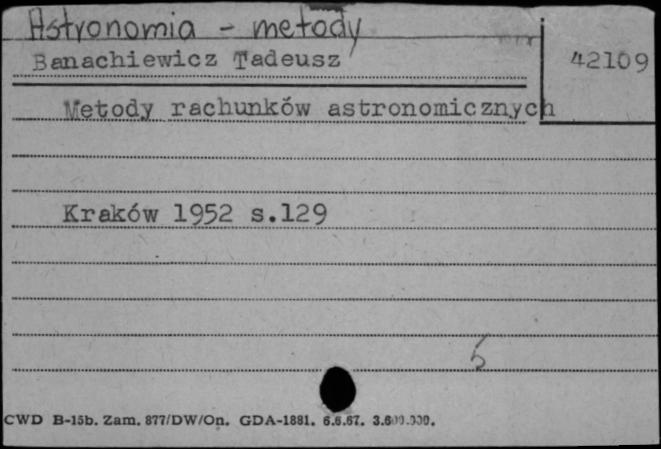 Astronomia - metody
Banachiewicz Tadeusz
42109
Metody rachunków astronomicznych
Kraków 1952 s.129
5
CWD B-15b. Zam. 877/DW/On. GDA-1881. 6.6.67. 3.600.000.